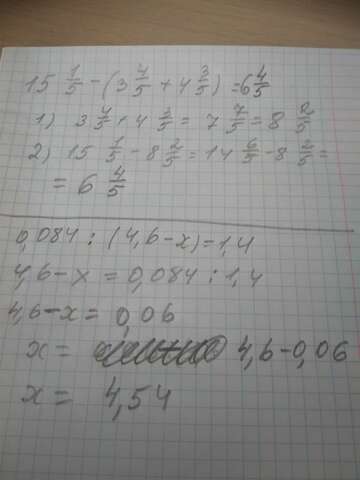 15 1/5 - (3 4/5 + 4 3/5) = 6 4/5
1) 3 4/5 + 4 3/5 = 7 7/5 = 8 2/5
2) 15 1/5 - 8 2/5 = 14 6/5 - 8 2/5 =
= 6 4/5
0,084 : (4,6-x)=1,4
4,6-x = 0,084 : 1,4
4,6-x = 0,06
x = 4,6-0,06
x = 4,54